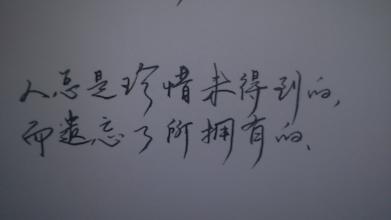 人总是珍惜未得到的，
而遗忘了所拥有的、